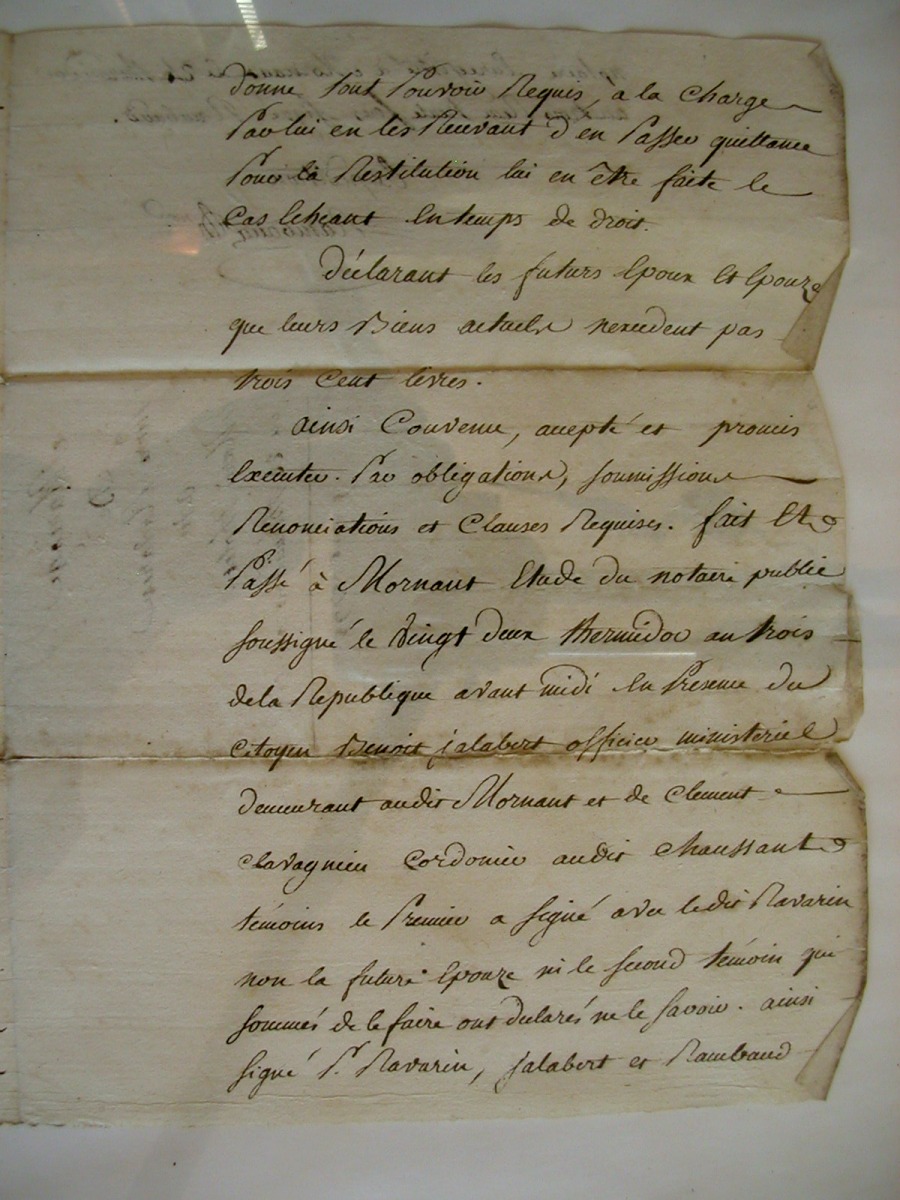 donne tout Pouvoir Requis, a la Charge
Par lui en les Recevant d'en Passer quittance
Pour la Restitution lui en être faite le
Cas Echeant En temps de droit.
Déclarant les futurs Epoux Et Epouze
que leurs Biens actuels nexcedent pas
trois Cent livres.
ainsi Convenu, accepté et promis
Executer. Par obligations, soumissions
Renonciations et Clauses Requises. fait Et
Passé à Mornant Etude du notaire public
soussigné le Vingt deux thermidor an trois
de la Republique avant midi En Presence du
Citoyen Benoit jalabert officier ministeriel
Demeurant audit Mornant et de Clement
Clavagnieu Cordonier audit Chaussant
témoins le Premier a signé avec ledit Ravarin
non la future Epouze ni le second témoin qui
sommés de le faire ont declarés ne le savoir. ainsi
signé Pr. Ravarin, jalabert et Rambaud